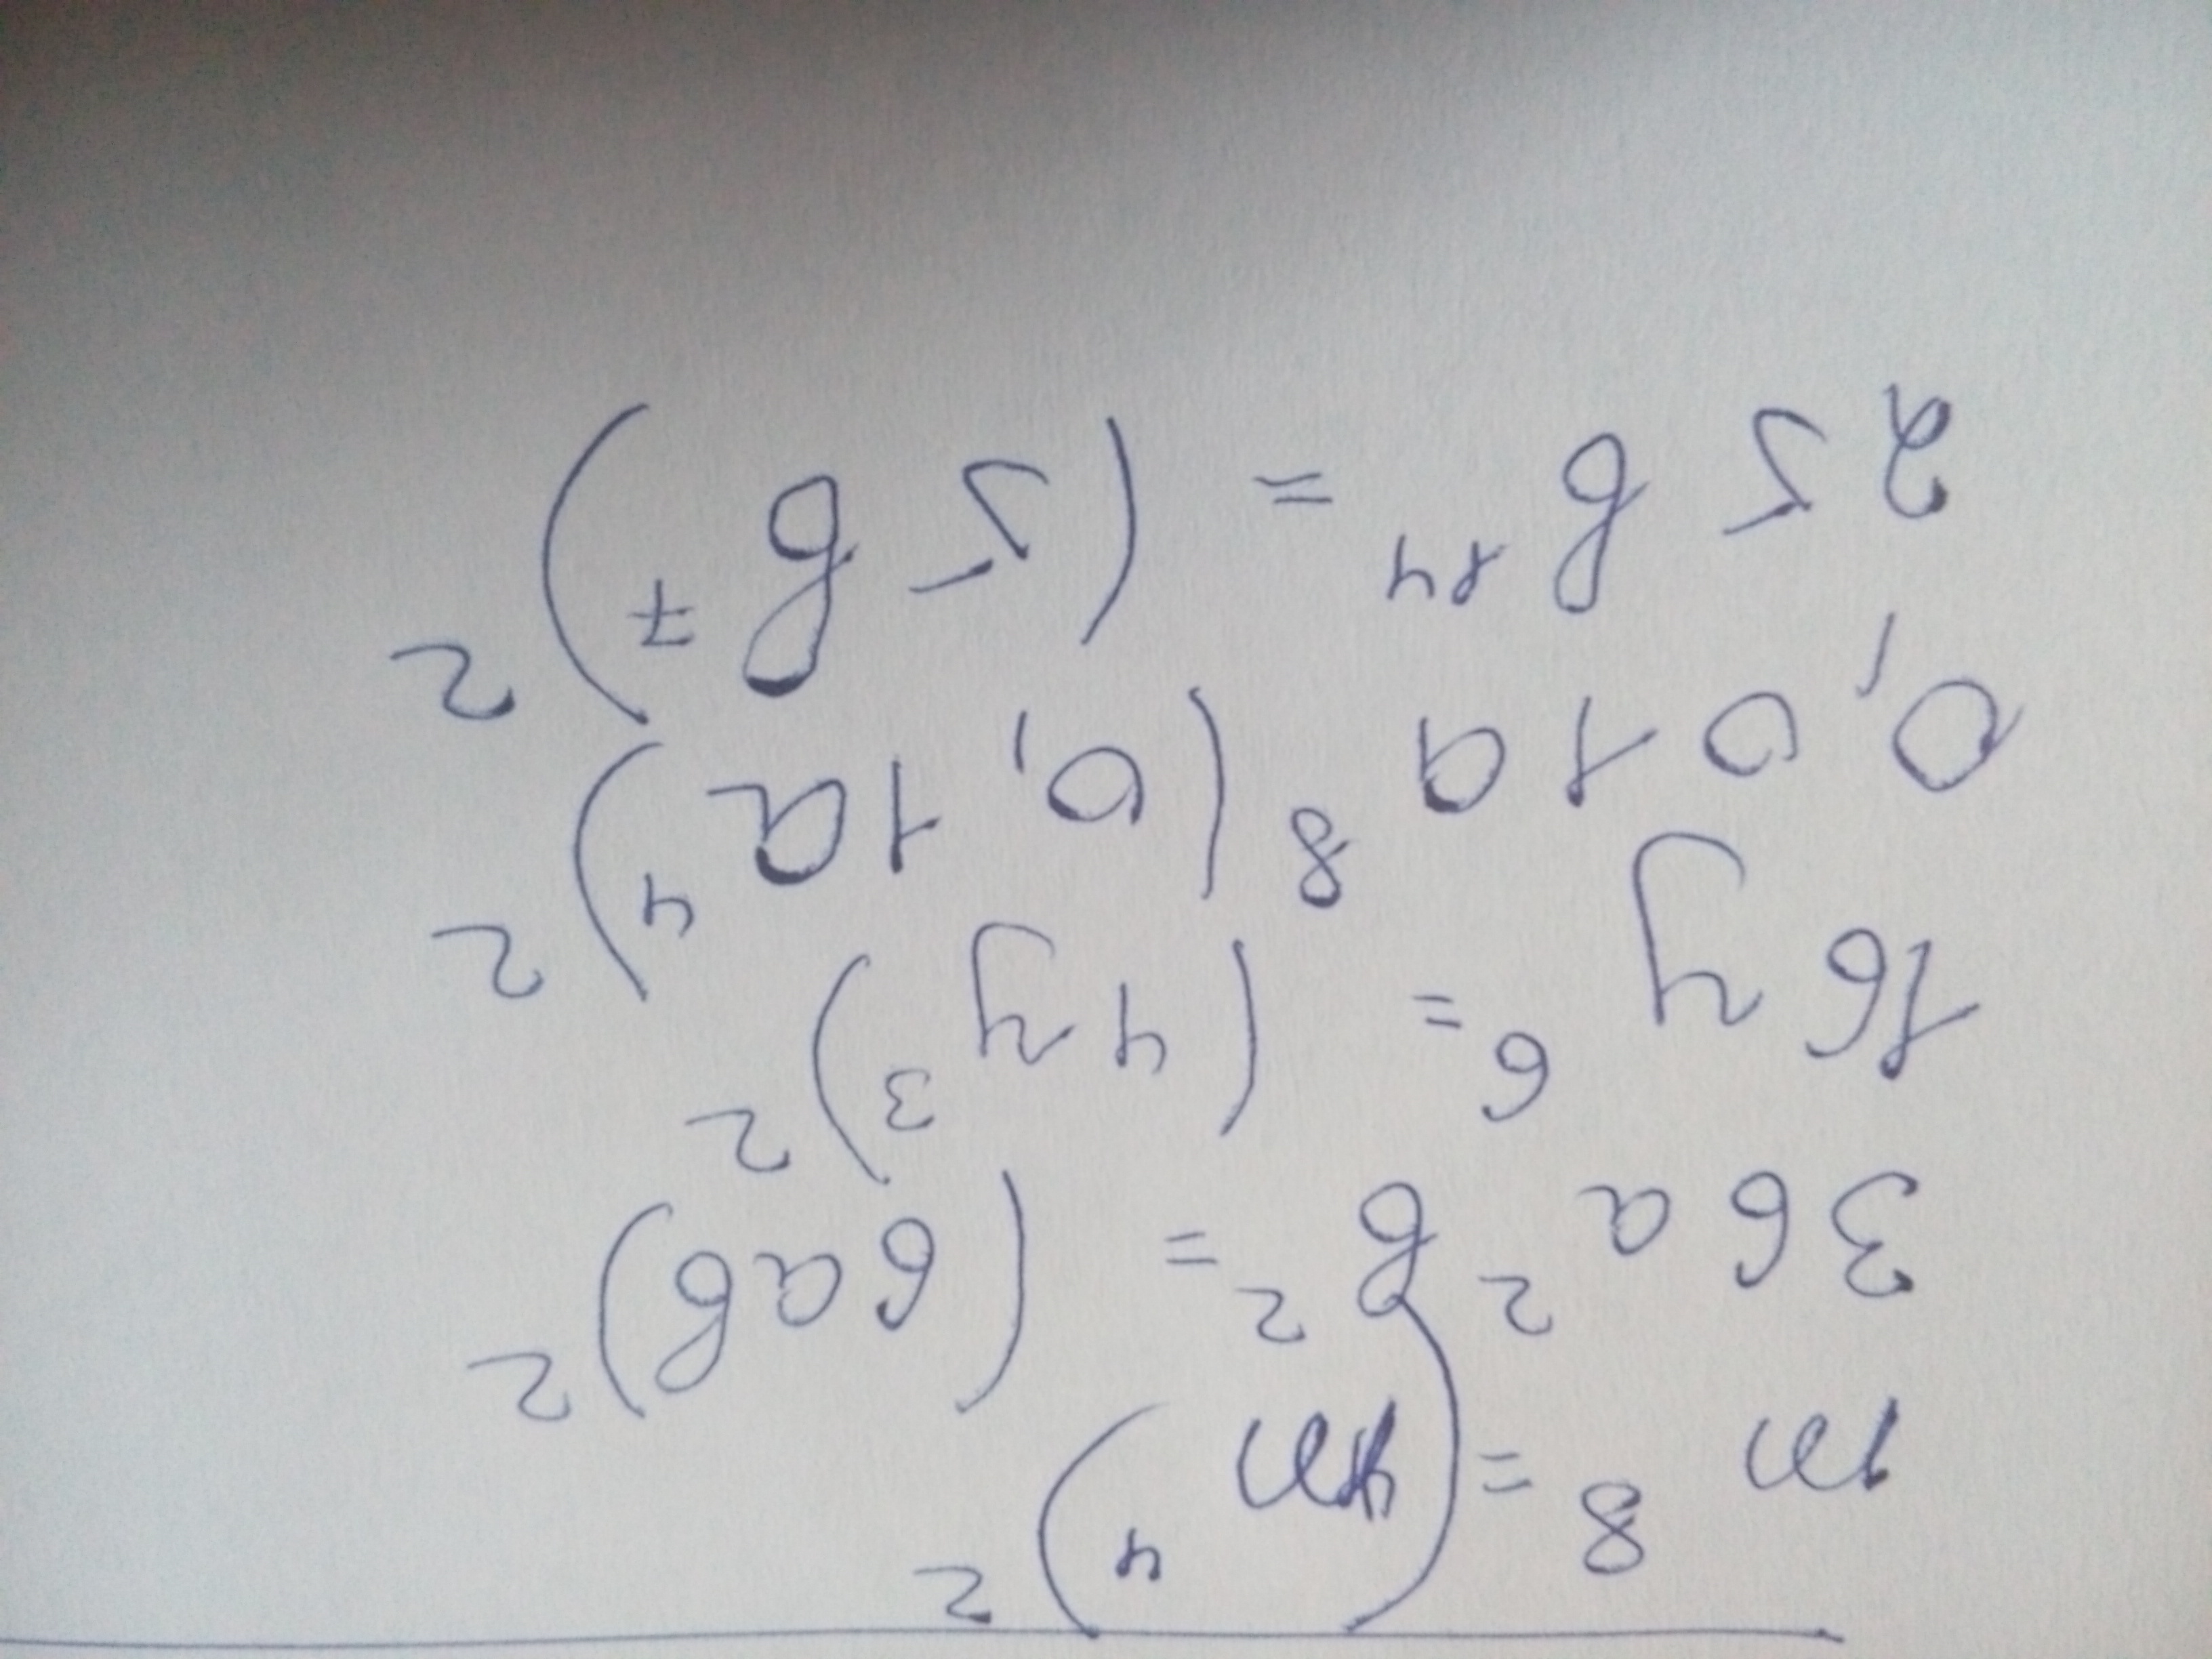 m⁸ = (m⁴)²
36a²b² = (6ab)²
16y⁶ = (4y³)²
0,01a⁸ (0,1a⁴)²
25b¹⁴ = (5b⁷)²